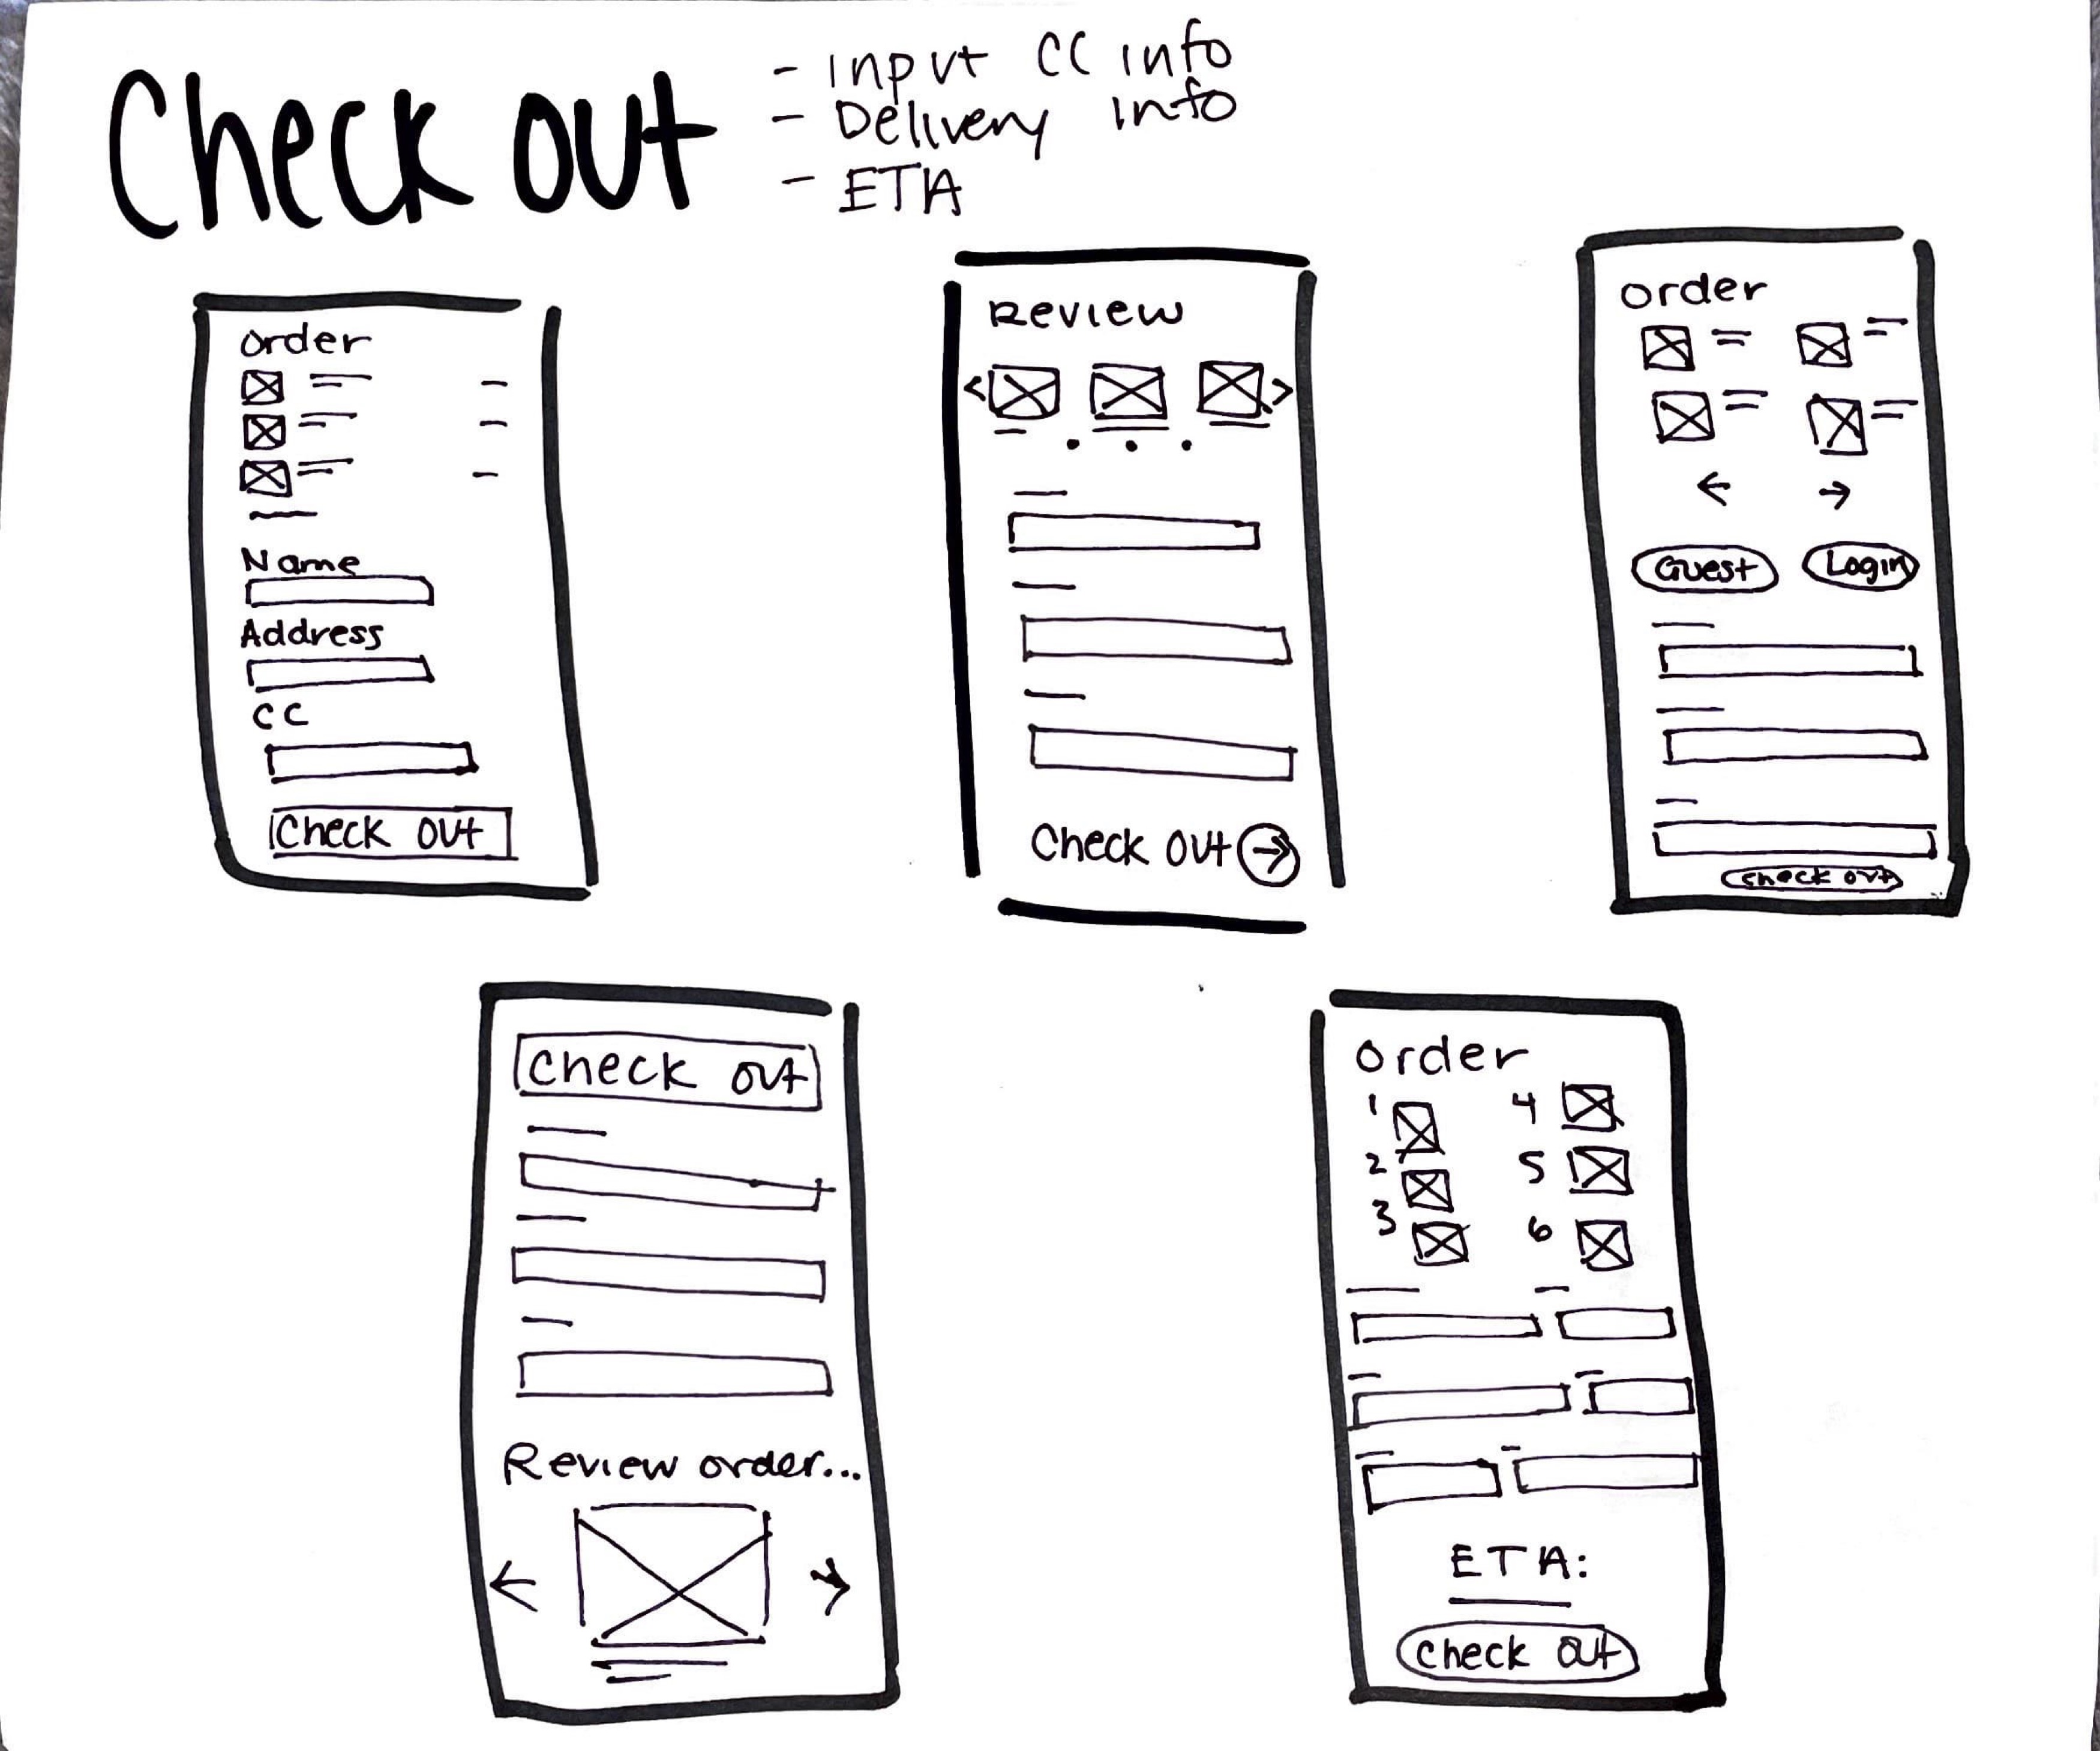 Check out
- Input CC info
- Delivery info
- ETA
order
Name
Address
CC
Check out
Review
< >
Check out →
order
← →
Guest Login
check out
check out
Review order...
← →
order
1 4
2 5
3 6
ETA:
check out